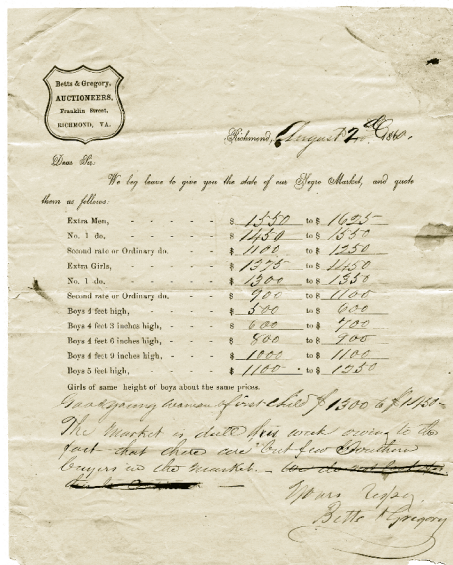 Betts & Gregory,
AUCTIONEERS,
Franklin Street,
RICHMOND, VA.
Richmond, August 2d 1860.
Dear Sir:
We beg leave to give you the state of our Negro Market, and quote
them as follows:
Extra Men, - - - - - $ 1550 to $ 1625
No. 1 do. - - - - - $ 1450 to $ 1550
Second rate or Ordinary do. - - $ 1100 to $ 1250
Extra Girls, - - - - - $ 1375 to $ 1450
No. 1 do. - - - - - $ 1300 to $ 1350
Second rate or Ordinary do. - - $ 900 to $ 1100
Boys 4 feet high, - - - - $ 500 to $ 600
Boys 4 feet 3 inches high, - - - $ 600 to $ 700
Boys 4 feet 6 inches high, - - - $ 800 to $ 900
Boys 4 feet 9 inches high, - - - $ 1000 to $ 1100
Boys 5 feet high, - - - - $ 1100 to $ 1250
Girls of same height of boys about the same prices.
Good young woman & first child $1300 to $1450
The market is dull this week owing to the
fact that there are but few Southern
buyers in the market. —
Yours respy
Betts & Gregory